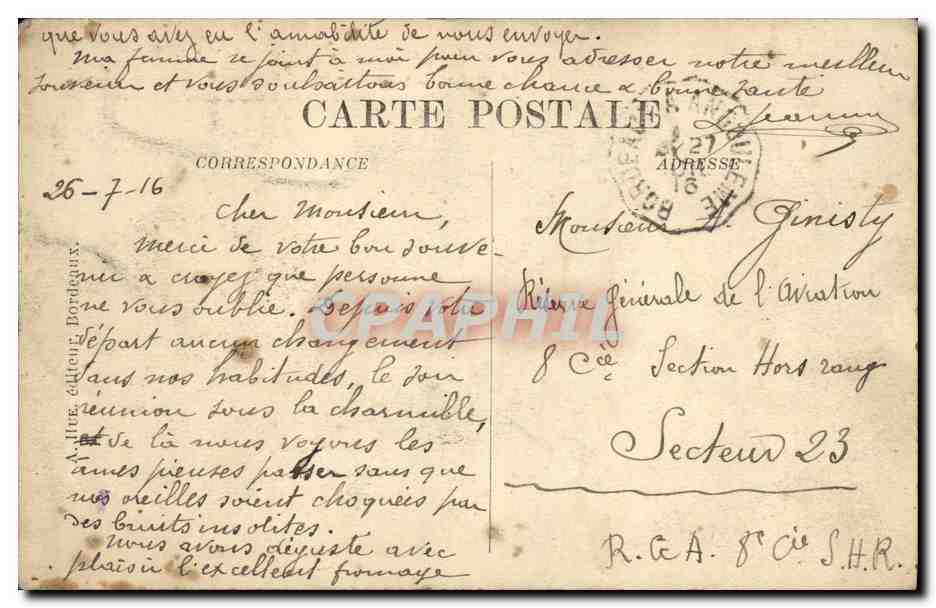 que vous avez eu l'amabilité de nous envoyer.
Ma femme se joint à moi pour vous adresser notre meilleur
souvenir et vous souhaitons bonne chance & bonne santé
CARTE POSTALE
CORRESPONDANCE
ADRESSE
BORDEAUX A ANGOULEME
27
16
26-7-16
Cher Monsieur,
Merci de votre bon souve-
nir & croyez que personne
ne vous oublie. Depuis votre
départ aucun changement
dans nos habitudes, le soir
réunion sous la charmille,
et de là nous voyons les
âmes pieuses passer sans que
nos oreilles soient choquées par
des bruits insolites.
Nous avons déguste avec
plaisir l'excellent fromage
Monsieur A. Ginisty
Réserve Générale de l'Aviation
8 Cie Section Hors rang
Secteur 23
R.G.A. 8e Cie S.H.R.
A. HUE, éditeur, Bordeaux.
CPAPHIL